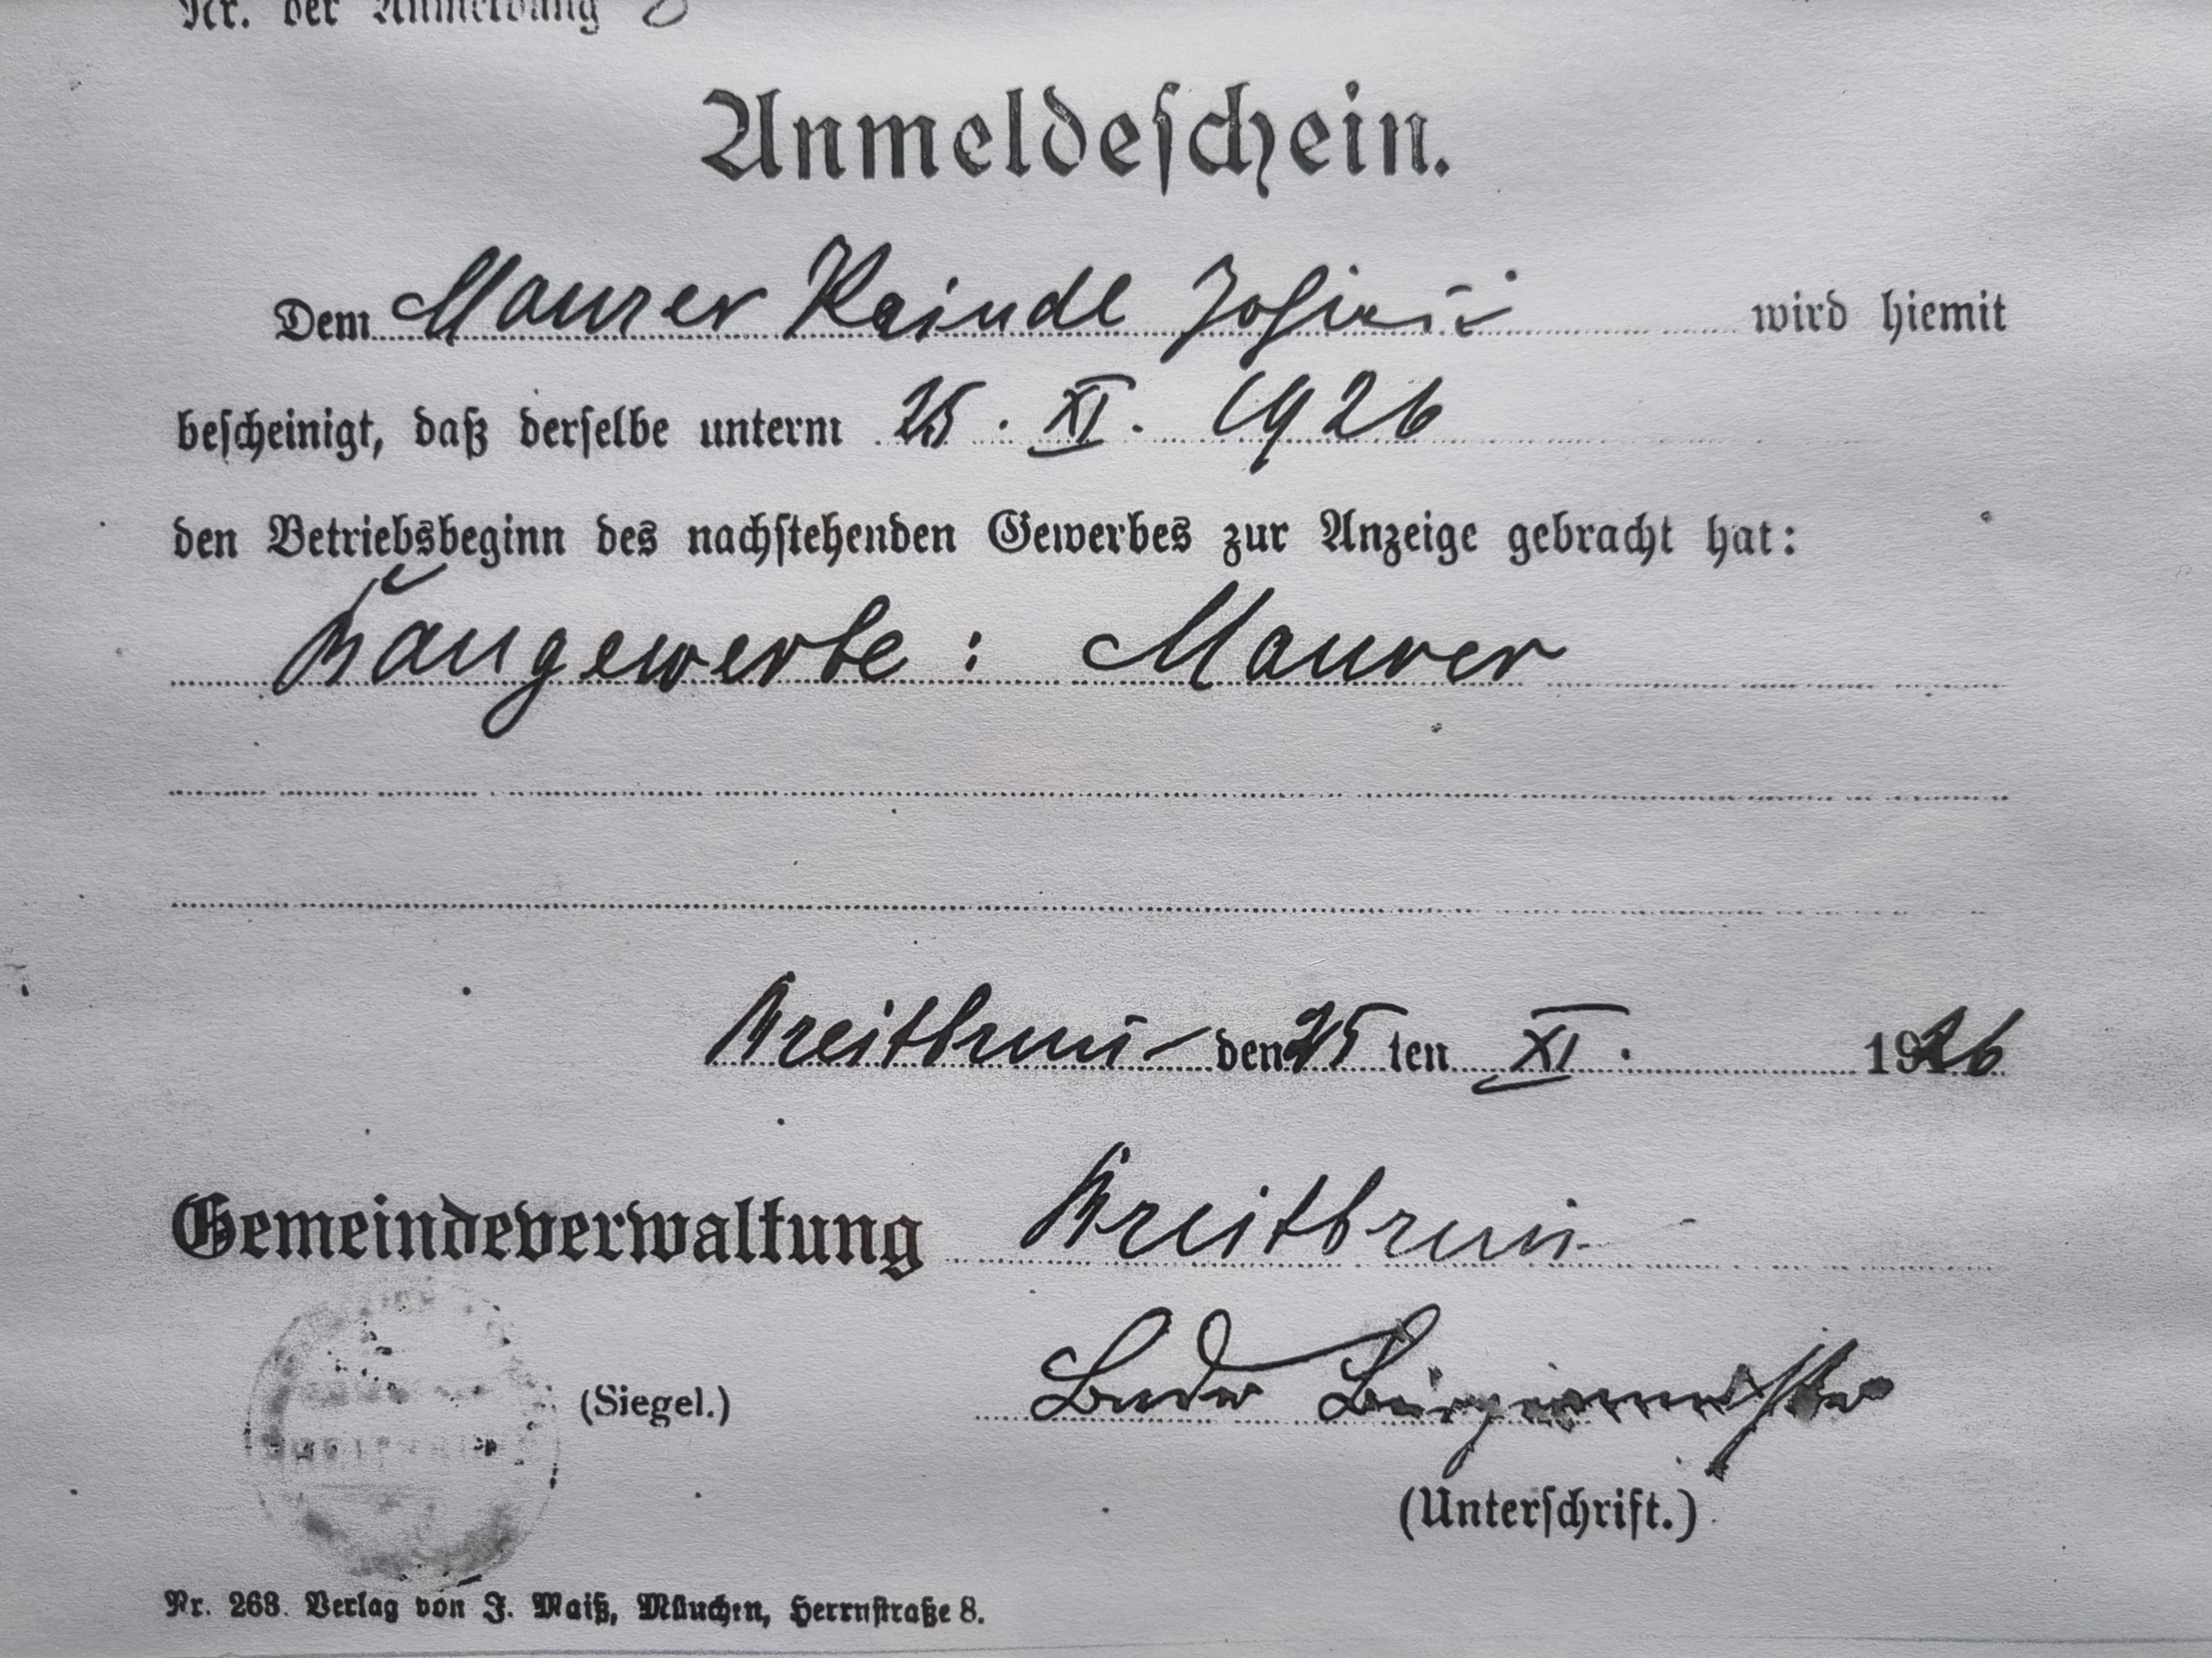 Nr. der Anmeldung
Anmeldeschein.
Dem Maurer Raindl wird hiemit
bescheinigt, daß derselbe unterm 25. XI. 1926
den Betriebsbeginn des nachstehenden Gewerbes zur Anzeige gebracht hat:
Baugewerbe : Maurer
Breitbrunn den 25 ten XI. 1926
Gemeindeverwaltung Breitbrunn
(Siegel.)
Bürgermeister
(Unterschrift.)
Nr. 268. Verlag von J. Maiß, München, Herrnstraße 8.